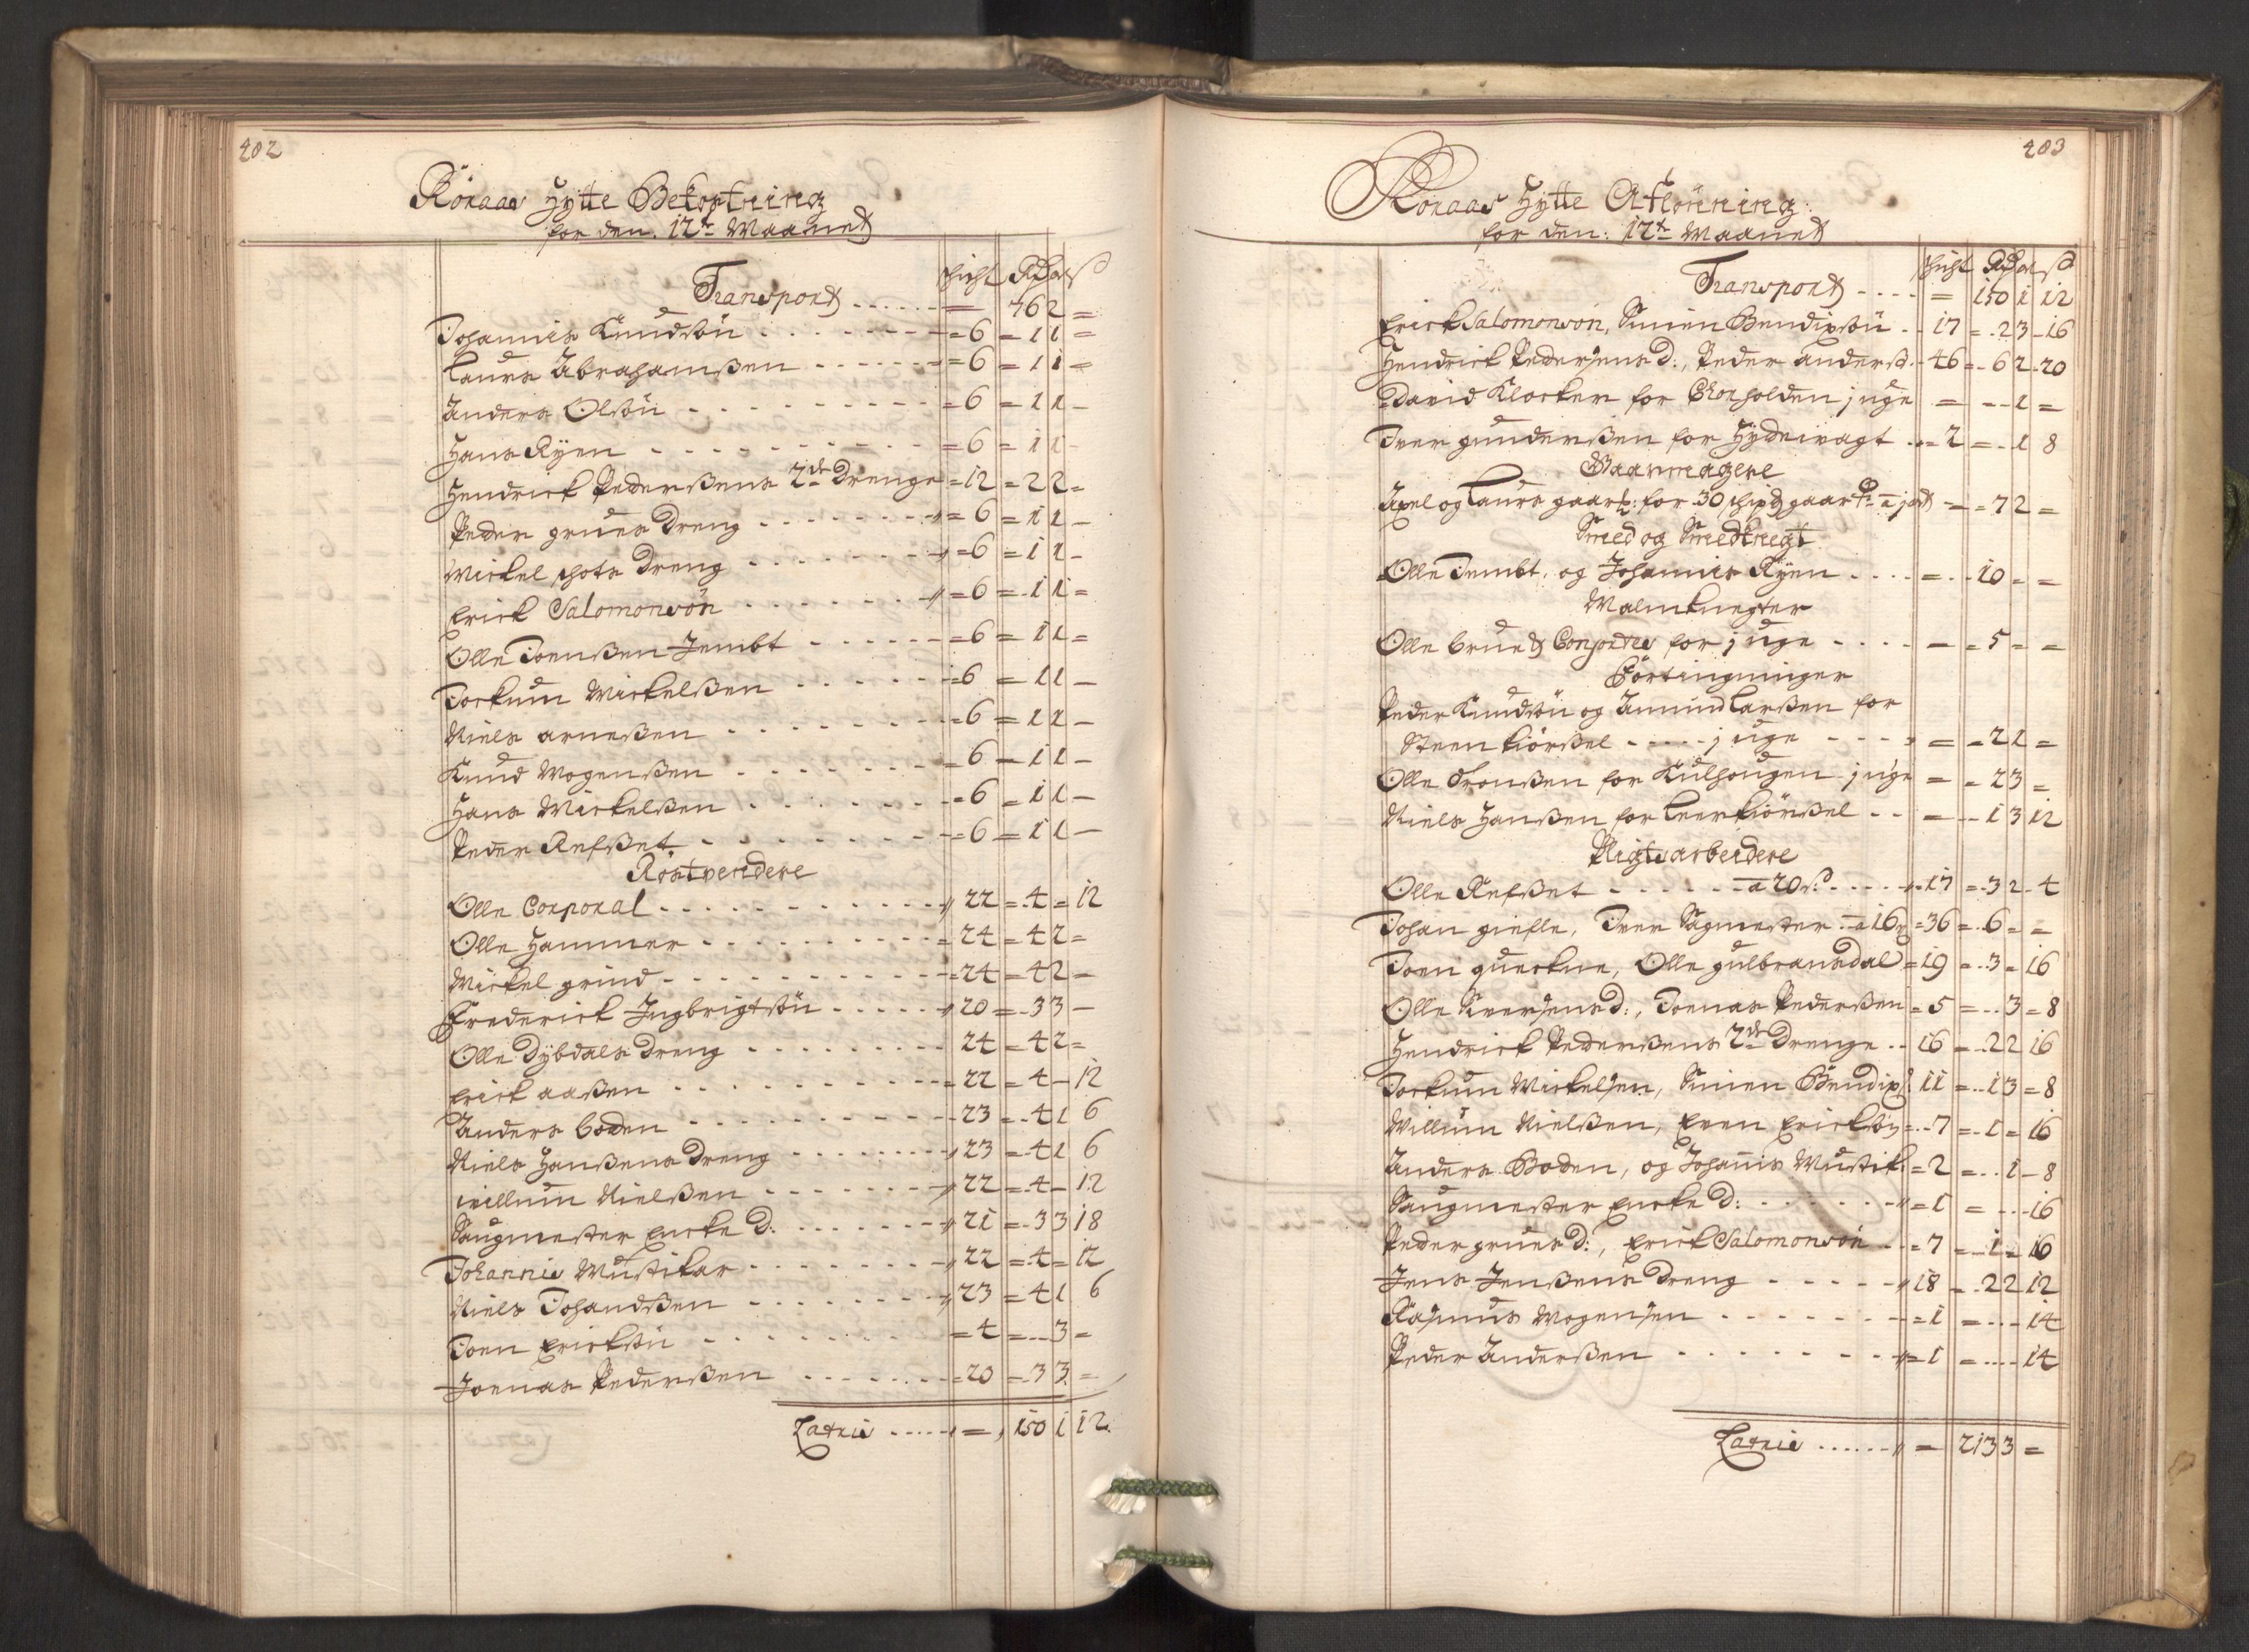 402
Röraas Hytte Bekostning
for den. 12te Maanet
Schicht Rdr ort ß
Transport ..... = 76 2 =
Johannis Knudsön ..... = 6 = 1 1 =
Laurs Abrahamßen ..... = 6 = 1 1 =
Anders Olsön ..... = 6 = 1 1 -
Hans Ryen ..... = 6 = 1 1 -
Hendrick Pederßens 2de Drenge = 12 = 2 2 =
Peder grues Dreng ..... = 6 = 1 1 -
Mickel schots Dreng ..... = 6 = 1 1 -
Erick Salomonsön ..... = 6 = 1 1 =
Olle Joenßen Jembt ..... = 6 = 1 1 =
Jockum Mickelßen ..... = 6 = 1 1 -
Niels arneßen ..... = 6 = 1 1 -
Knud Mogenßen ..... = 6 = 1 1 -
Hans Mickelßen ..... = 6 = 1 1 -
Peder Refßet ..... = 6 = 1 1 -
Rostvendere
Olle Corporal ..... 22 = 4 = 12
Olle Hammer ..... = 24 = 4 2 =
Mickel grind ..... = 24 = 4 2 -
Frederick Ingbrigtsön ..... 20 = 3 3 -
Olle Dybdals Dreng ..... 24 = 4 2 =
Erick aaßen ..... = 22 = 4 - 12
Anders boden ..... 23 = 4 1 6
Niels Hanßens Dreng ..... 23 = 4 1 6
willum Nielßen ..... 22 = 4 - 12
Saugmester Encke D: ..... 21 = 3 3 18
Johannis Musikar ..... 22 = 4 = 12
Niels Johandßen ..... 23 = 4 1 6
Joen Ericksön ..... = 4 = .. 3 =
Joenas Pederßen ..... = 20 = 3 3 =
Latris ..... = 150 1 12
403
Röraas Hytte Aflönning
for den: 12te Maanet
Schicht Rdr ort ß
Transport .... = 150 1 12
Erick Salomonsön, Simen Bendixsön .. 17 = 2 3 - 16
Hendrick Pedersens d:, Peder anderß. 46 = 6 2 - 20
David Klocker for Chorholden j uge = .. 1 =
Iver gunderßen for Hydrivagt .. = 2 = . 1 8
Gaarmagere
Axel og Laurs gaarh: for 30 schipd gaar a j ort = = 7 2 =
Smed og Smedknegt
Olle Jembt, og Johannis Ryen .... = .. 10 - =
Malmknegter
Olle brue & Consortes for j uge .... = = 5 - =
Förtingninger
Peder Knudsön og Amund Larßen for
Steen kiörßel ..... j uge .... = = 2 1 =
Olle Tronßen for Kulhougen j uge = = 2 3 =
Niels Hanßen for Leer kiörßel .. = .. 1 3 12
Pligtsarbeidere
Olle Refßet ...... a 20 ß: ..... 17 = 3 2 - 4
Johan giefle, Iver Sagmester: a 16 = 36 = 6 - =
Joen querkne, Olle gulbrandsdal = 19 = .. 3 = 16
Olle Iversens d:, Joenas Pederßen = 5 = ... 3 = 8
Hendrick Pederßens 2de Drenge .. 16 = .. 2 2 16
Jockum Mickelsen, Simen Bendixß. 11 = .. 1 3 = 8
Willum Nielßen, Even Ericksön = .. 7 = .. 1 = 16
Anders Boden, og Johanis Musik: = 2 = .. 1 - 8
Saugmester Encke D: ...... = 1 = ... 16
Peder grues d:, Erick Salomonsön .. = 7 = .. 1 = 16
Jens Jenßens Dreng ..... 18 = . 2 2 12
Rasmus Mogensen ...... = 1 = ... 14
Peder Anderßen ...... = 1 = .... 14
Latris ...... = 213 3 =